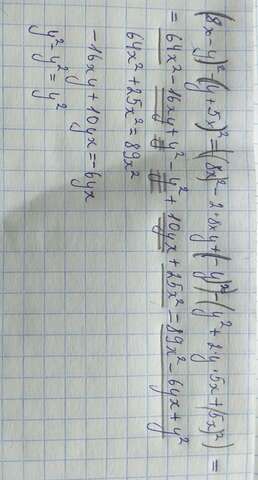 (8x-y)²-(y+5x)²=(8x)²-2·8xy+(-y)²)-(y²+2·y·5x+(5x)²)=
=64x²-16xy+y²-y²+10yx+25x²=89x²-6yx+y²
64x²+25x²=89x²
-16xy+10yx=-6yx
y²-y²=y²